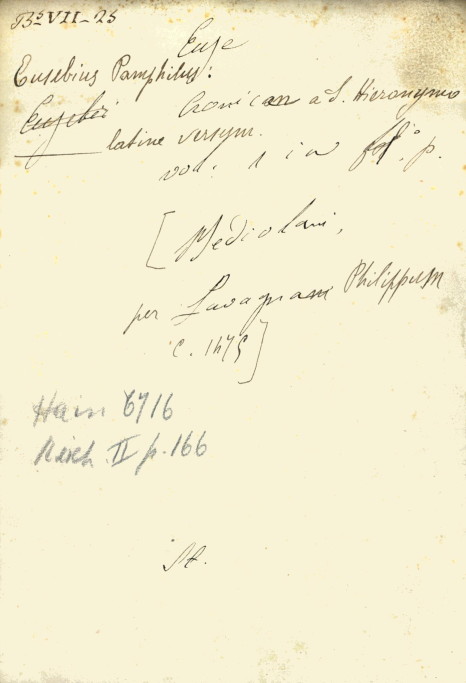 Bº VII-25
Euse
Eusebius Pamphilus:
Eusebii Cronican a S. Hieronymo
latine versum.
vol: 1 in fol.º p.
[Mediolani,
per Lavagnam Philippum
c. 1475]
Hain 6716
Reich. II p. 166